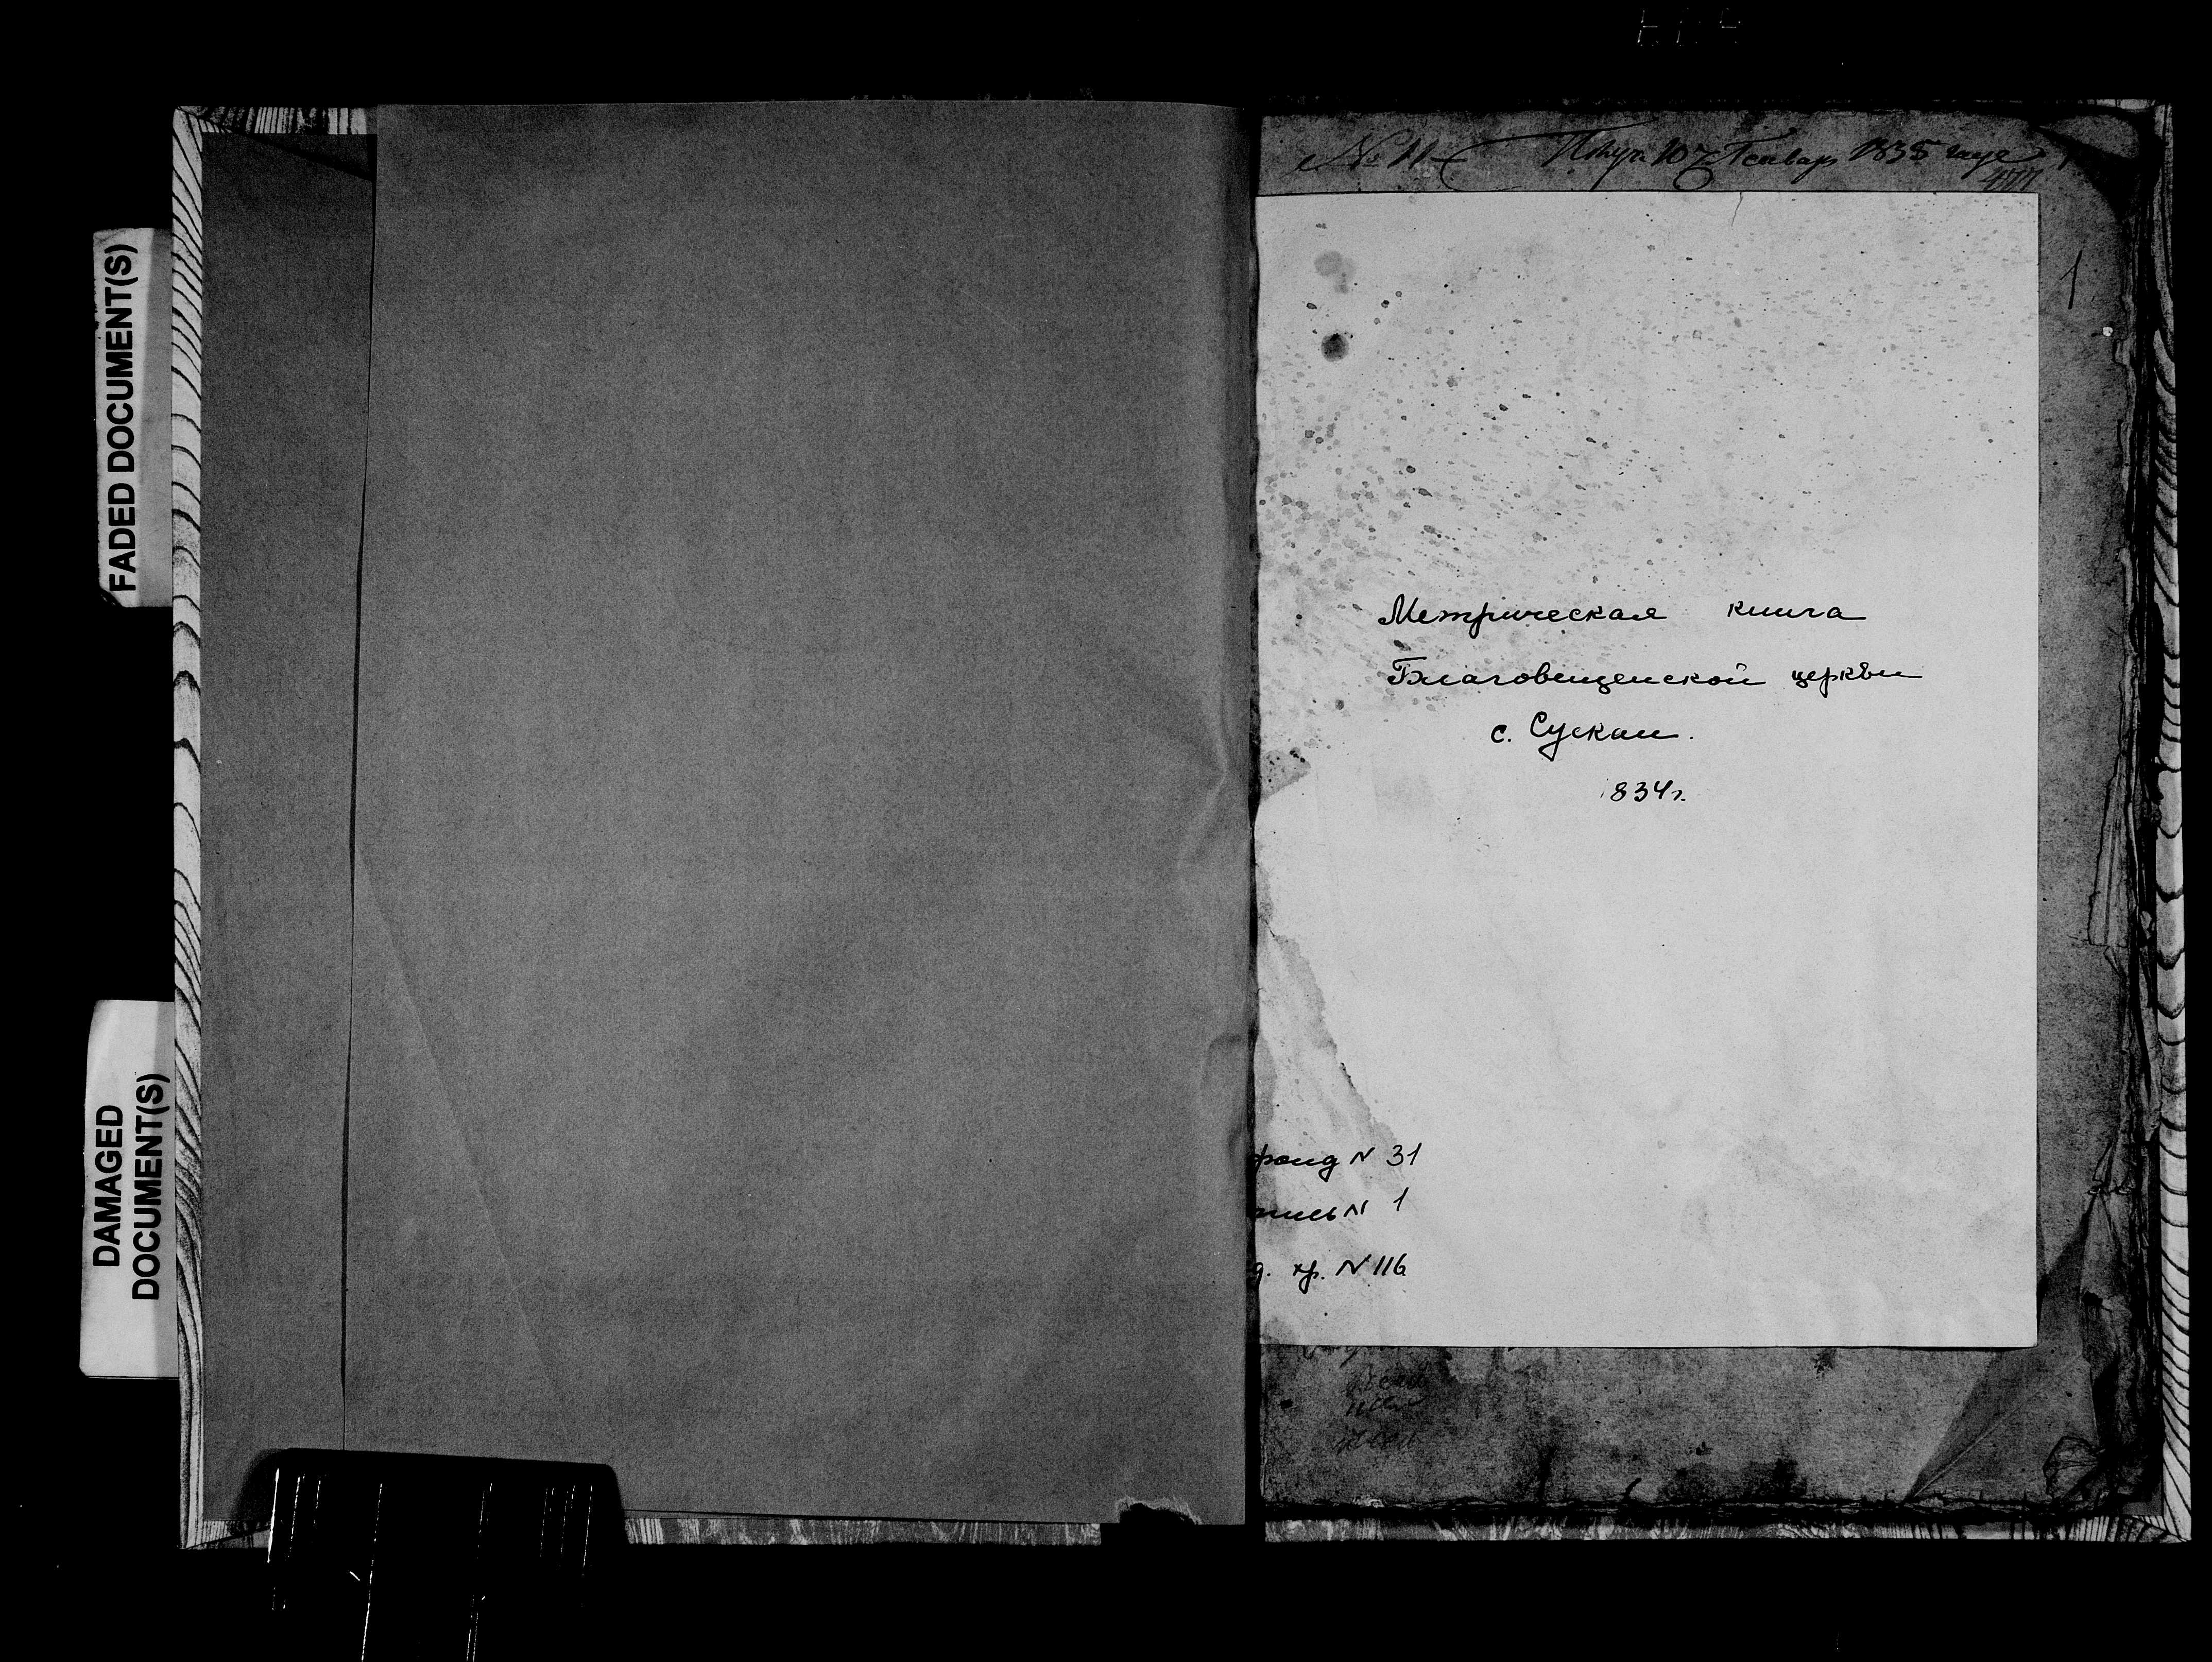 FADED DOCUMENT(S)
DAMAGED
DOCUMENT(S)
№ 11 1835 года
1
Метрическая книга
Благовещенской церкви
с. Сускан.
1834г.
фонд N 31
пись N 1
д. хр. N 116